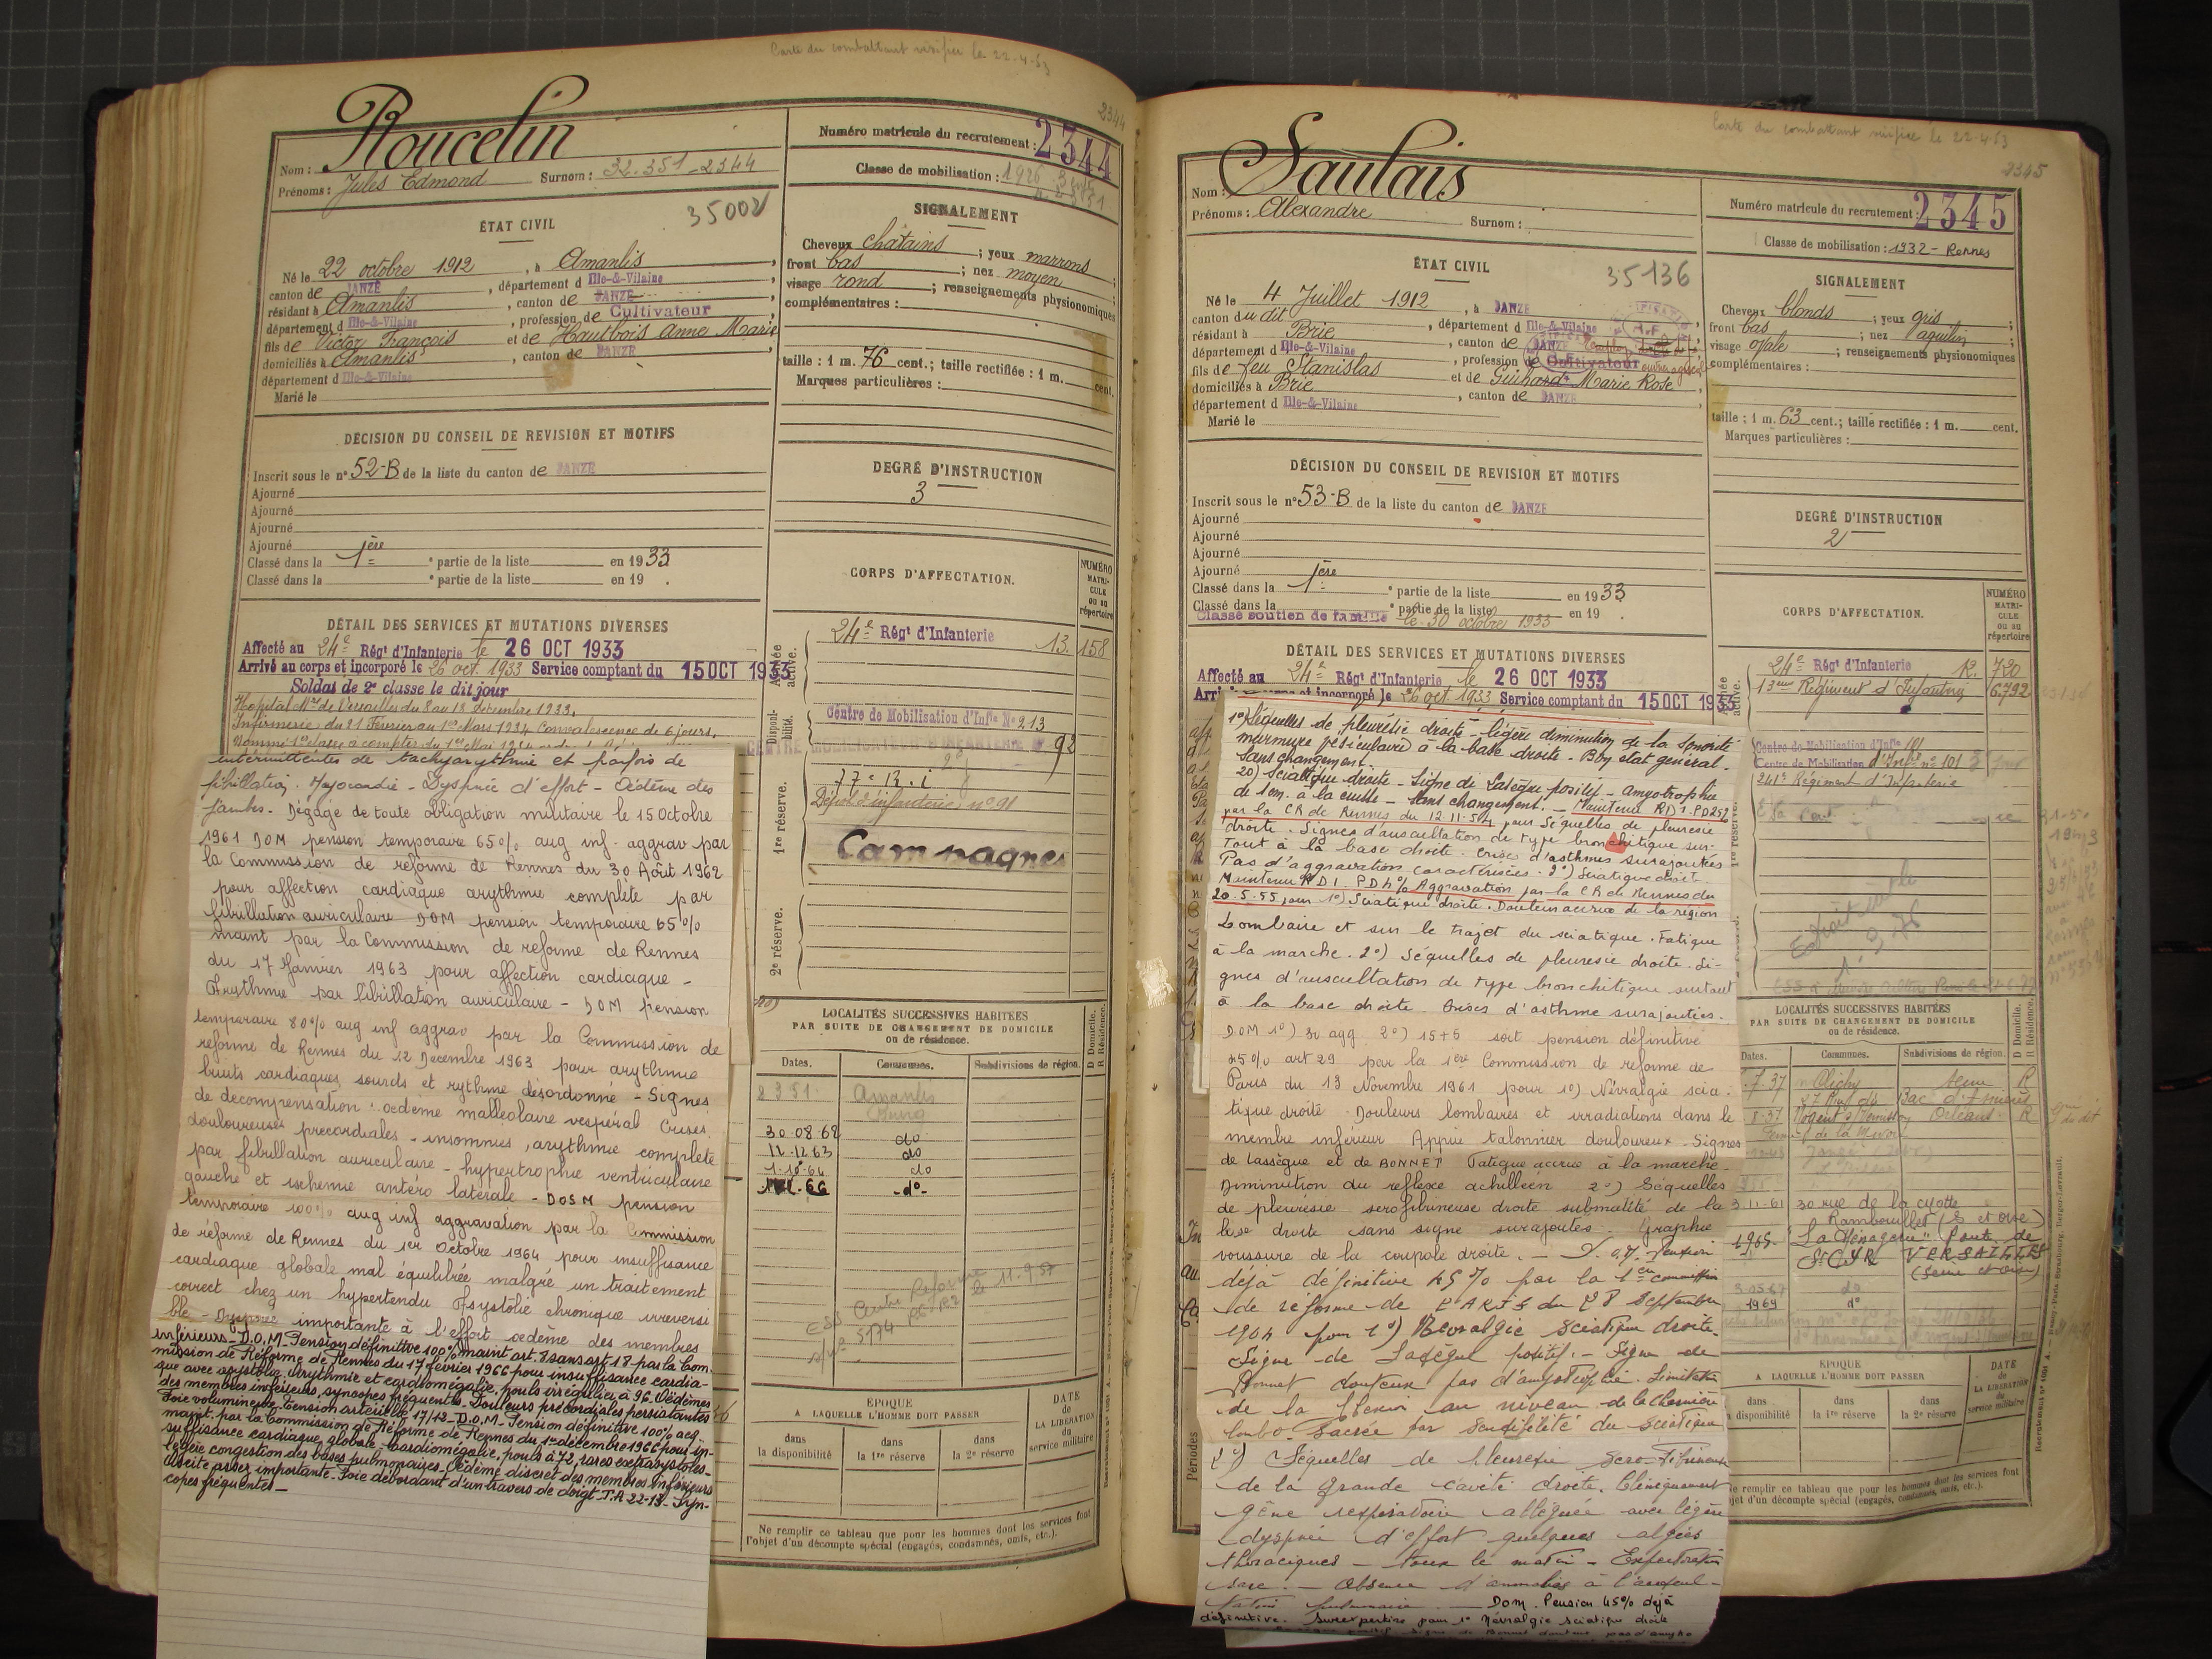 Carte du combattant vérifiée le 22-4-53
2344
Nom : Roucelin
Prénoms : Jules Edmond Surnom : 32.351_2344
Numéro matricule du recrutement : 2344
Classe de mobilisation : 1926
35002
ÉTAT CIVIL
Né le 22 octobre 1912, à Amanlis
canton de JANZÉ, département d Ille-&-Vilaine
résidant à Amanlis, canton de JANZÉ
département d Ille-&-Vilaine, profession de Cultivateur
fils de Victor François et de Hautbois Anne Marie
domiciliés à Amanlis, canton de JANZÉ
département d Ille-&-Vilaine
Marié le
SIGNALEMENT
Cheveux chatains ; yeux marrons ;
front bas ; nez moyen ;
visage rond ; renseignements physionomiques
complémentaires :
taille : 1 m. 76 cent. ; taille rectifiée : 1 m. cent.
Marques particulières :
DÉCISION DU CONSEIL DE REVISION ET MOTIFS
Inscrit sous le n° 52-B de la liste du canton de JANZÉ
Ajourné
Ajourné
Ajourné
Ajourné
Classé dans la 1ère ° partie de la liste en 1933
Classé dans la ° partie de la liste en 19 .
DEGRÉ D'INSTRUCTION
3
DÉTAIL DES SERVICES ET MUTATIONS DIVERSES
Affecté au 24e Régt d'Infanterie le 26 OCT 1933
Arrivé au corps et incorporé le 26 oct. 1933 Service comptant du 15 OCT 1933
Soldat de 2e classe le dit jour
Hopital Mre de Versailles du 8 au 18 décembre 1933.
Infirmerie du 21 Février au 1er Mars 1934 Convalescence de 6 jours.
Nommé 1re classe à compter du 1er Mai 1934
intermittentes de tachyarythmie et parfois de
fibrillation. Myocardie - Dyspnée d'effort - Oedème des
jambes. Dégagé de toute obligation militaire le 15 Octobre
1961 DOM pension temporaire 65% aug inf. aggrav par
la Commission de réforme de Rennes du 30 Août 1962
pour affection cardiaque arythmie complète par
fibrillation auriculaire DOM pension temporaire 65%
maint par la Commission de reforme de Rennes
du 17 Janvier 1963 pour affection cardiaque -
Arythmie par fibrillation auriculaire - DOM pension
temporaire 80% aug inf aggrav par la Commission de
reforme de Rennes du 12 Decembre 1963 pour arythmie
bruits cardiaques sourds et rythme désordonné - Signes
de decompensation : oedème malleolaire vespéral Crises
douloureuses précordiales - insomnies, arythmie complète
par fibrillation auriculaire - hypertrophie ventriculaire
gauche et ischemie antéro latérale - DOSM pension
temporaire 100% aug inf aggravation par la Commission
de réforme de Rennes du 1er Octobre 1964 pour insuffisance
cardiaque globale mal équilibrée malgré un traitement
correct chez un hypertendu Asystolie chronique irreversi
ble - Dyspnée importante à l'effort oedème des membres
inférieurs - D.O.M. Pension définitive 100% maint art. 8 sans art 18 par la Com.
mission de Réforme de Rennes du 17 février 1966 pour insuffisance cardia-
que avec asystolie. Arythmie et cardiomégalie, pouls irrégulier à 96. Oedèmes
des membres inférieurs, syncopes fréquentes. Douleurs précordiales persistantes
Foie volumineux. Tension artérielle 17/12 - D.O.M. Pension définitive 100% acq-
maint. par la Commission de Réforme de Rennes du 1er décembre 1966 pour in-
suffisance cardiaque globale. Cardiomégalie, pouls à 72, rares extrasystoles_
légère congestion des bases pulmonaires. Oedème discret des membres inférieurs
Ascite assez importante. Foie débordant d'un travers de doigt. T.A 22-13. Syn-
copes fréquentes _
CORPS D'AFFECTATION.
NUMÉRO MATRI- CULE ou au répertoire
24e Régt d'Infanterie 13. 158
Centre de Mobilisation d'Infie N° 213
Dépôt d'infanterie n° 91
Campagnes
Disponi- bilité.
1re réserve.
2e réserve.
LOCALITÉS SUCCESSIVES HABITÉES
PAR SUITE DE CHANGEMENT DE DOMICILE
ou de résidence.
Dates. Communes. Subdivisions de région.
D Domicile. R Résidence.
2 3 51 Amanlis
30.08.62 do
12.12.63 do
1-10-64 do
66 -do-
ÉPOQUE
A LAQUELLE L'HOMME DOIT PASSER
dans la disponibilité
dans la 1re réserve
dans la 2e réserve
DATE de LA LIBÉRATION du service militaire
Ne remplir ce tableau que pour les hommes dont les services font
l'objet d'un décompte spécial (engagés, condamnés, omis, etc.).
Carte du combattant vérifiée le 22-4-53
2345
Nom : Saulais
Prénoms : Alexandre Surnom :
Numéro matricule du recrutement : 2345
Classe de mobilisation : 1932 - Rennes
35136
ÉTAT CIVIL
Né le 4 Juillet 1912, à JANZÉ
canton du dit, département d Ille-&-Vilaine
résidant à Brie, canton de JANZÉ
département d Ille-&-Vilaine, profession de Cultivateur
fils de feu Stanislas et de Guihard Marie Rose
domiciliés à Brie, canton de JANZÉ
département d Ille-&-Vilaine
Marié le
SIGNALEMENT
Cheveux blonds ; yeux gris ;
front bas ; nez aquilin ;
visage ovale ; renseignements physionomiques
complémentaires :
taille : 1 m. 63 cent. ; taille rectifiée : 1 m. cent.
Marques particulières :
DÉCISION DU CONSEIL DE REVISION ET MOTIFS
Inscrit sous le n° 53-B de la liste du canton de JANZÉ
Ajourné
Ajourné
Ajourné
Ajourné
Classé dans la 1ère ° partie de la liste en 1933
Classé dans la ° partie de la liste en 19 .
Classé soutien de famille le 30 octobre 1933
DEGRÉ D'INSTRUCTION
2
DÉTAIL DES SERVICES ET MUTATIONS DIVERSES
Affecté au 24e Régt d'Infanterie le 26 OCT 1933
et incorporé le 26 oct 1933 Service comptant du 15 OCT 1933
1°) Séquelles de pleurésie droite - légère diminution de la sonorité
murmure vésiculaire à la base droite. Bon état général.
Sans changement.
2°) Sciatique droite - Signe de Lasègue positif - amyotrophie
de 1cm. à la cuisse - Sans changement. - Maintenu RD1. PD25%
par la CR de Rennes du 12.11.54 pour Séquelles de pleuresie
droite. Signes d'auscultation de type bronchitique sur-
tout à la base droite. Crises d'asthmes surajoutées
Pas d'aggravation caractérisée. 2°) Sciatique droit.
Maintenu RD1. PD h% Aggravation par la CR de Rennes du
20.5.55 pour 1°) Sciatique droite. Douleur accrue de la région
Lombaire et sur le trajet du sciatique. Fatigue
à la marche. 2°) Séquelles de pleuresie droite. Si-
gnes d'auscultation de type bronchitique surtout
à la base droite. Crises d'asthme surajoutées.
DOM 1°) 30 agg 2°) 15+5 soit pension définitive
45% art 29 par la 1ère Commission de reforme de
Paris du 13 Novembre 1961 pour 1°) Névralgie scia-
tique droite. Douleurs lombaires et irradiations dans le
membre inférieur Appui talonnier douloureux - Signes
de Lassègue et de BONNET Fatigue accrue à la marche_
Diminution du réflexe achilléen 2°) Séquelles
de pleurésie serofibrineuse droite submatité de la
base droite sans signe surajoutés. Graphie
voussure de la coupole droite. -
déjà définitive 45% par la 1ère Commission
de réforme de PARIS du 28 Septembre
1964 pour 1°) Névralgie Sciatique droite.
Signe de Lasègue positif. - Signe de
Bonnet douteux pas d'amyotrophie. Limitation
de la flexion au niveau de la charnière
lombo-sacrée par sensibilité du sciatique
2°) Séquelles de Pleurésie Sero-Fibrineuse
de la grande cavité droite. Cliniquement
gêne respiratoire alléguée avec légère
dyspnée d'effort quelques algies
thoraciques - toux le matin - Expectoration
rare. - Absence d'anomalies à l'auscul-
tation pulmonaire. - DOM. Pension 45% déjà
définitive. Surexpertise pour 1° Névralgie sciatique droite
CORPS D'AFFECTATION.
NUMÉRO MATRI- CULE ou au répertoire
24e Régt d'Infanterie 12. 720
13ème Régiment d'Infanterie 6792
Centre de Mobilisation d'Infie 101
Centre de Mobilisation d'Infie n° 101
241e Régiment d'Infanterie
LOCALITÉS SUCCESSIVES HABITÉES
PAR SUITE DE CHANGEMENT DE DOMICILE
ou de résidence.
Dates. Communes. Subdivisions de région.
D Domicile. R Résidence.
.7.37 Clichy Seine R
.8.37 Orléans R
3.11.61 30 rue de la
Rambouillet (S et Oise)
1965 "La Ménagerie" Route de
St CYR VERSAILLES
(Seine et Oise)
3.05.67 do
1969 do
ÉPOQUE
A LAQUELLE L'HOMME DOIT PASSER
dans la disponibilité
dans la 1re réserve
dans la 2e réserve
DATE de LA LIBÉRATION du service militaire
Ne remplir ce tableau que pour les hommes dont les services font
l'objet d'un décompte spécial (engagés, condamnés, omis, etc.).
Périodes